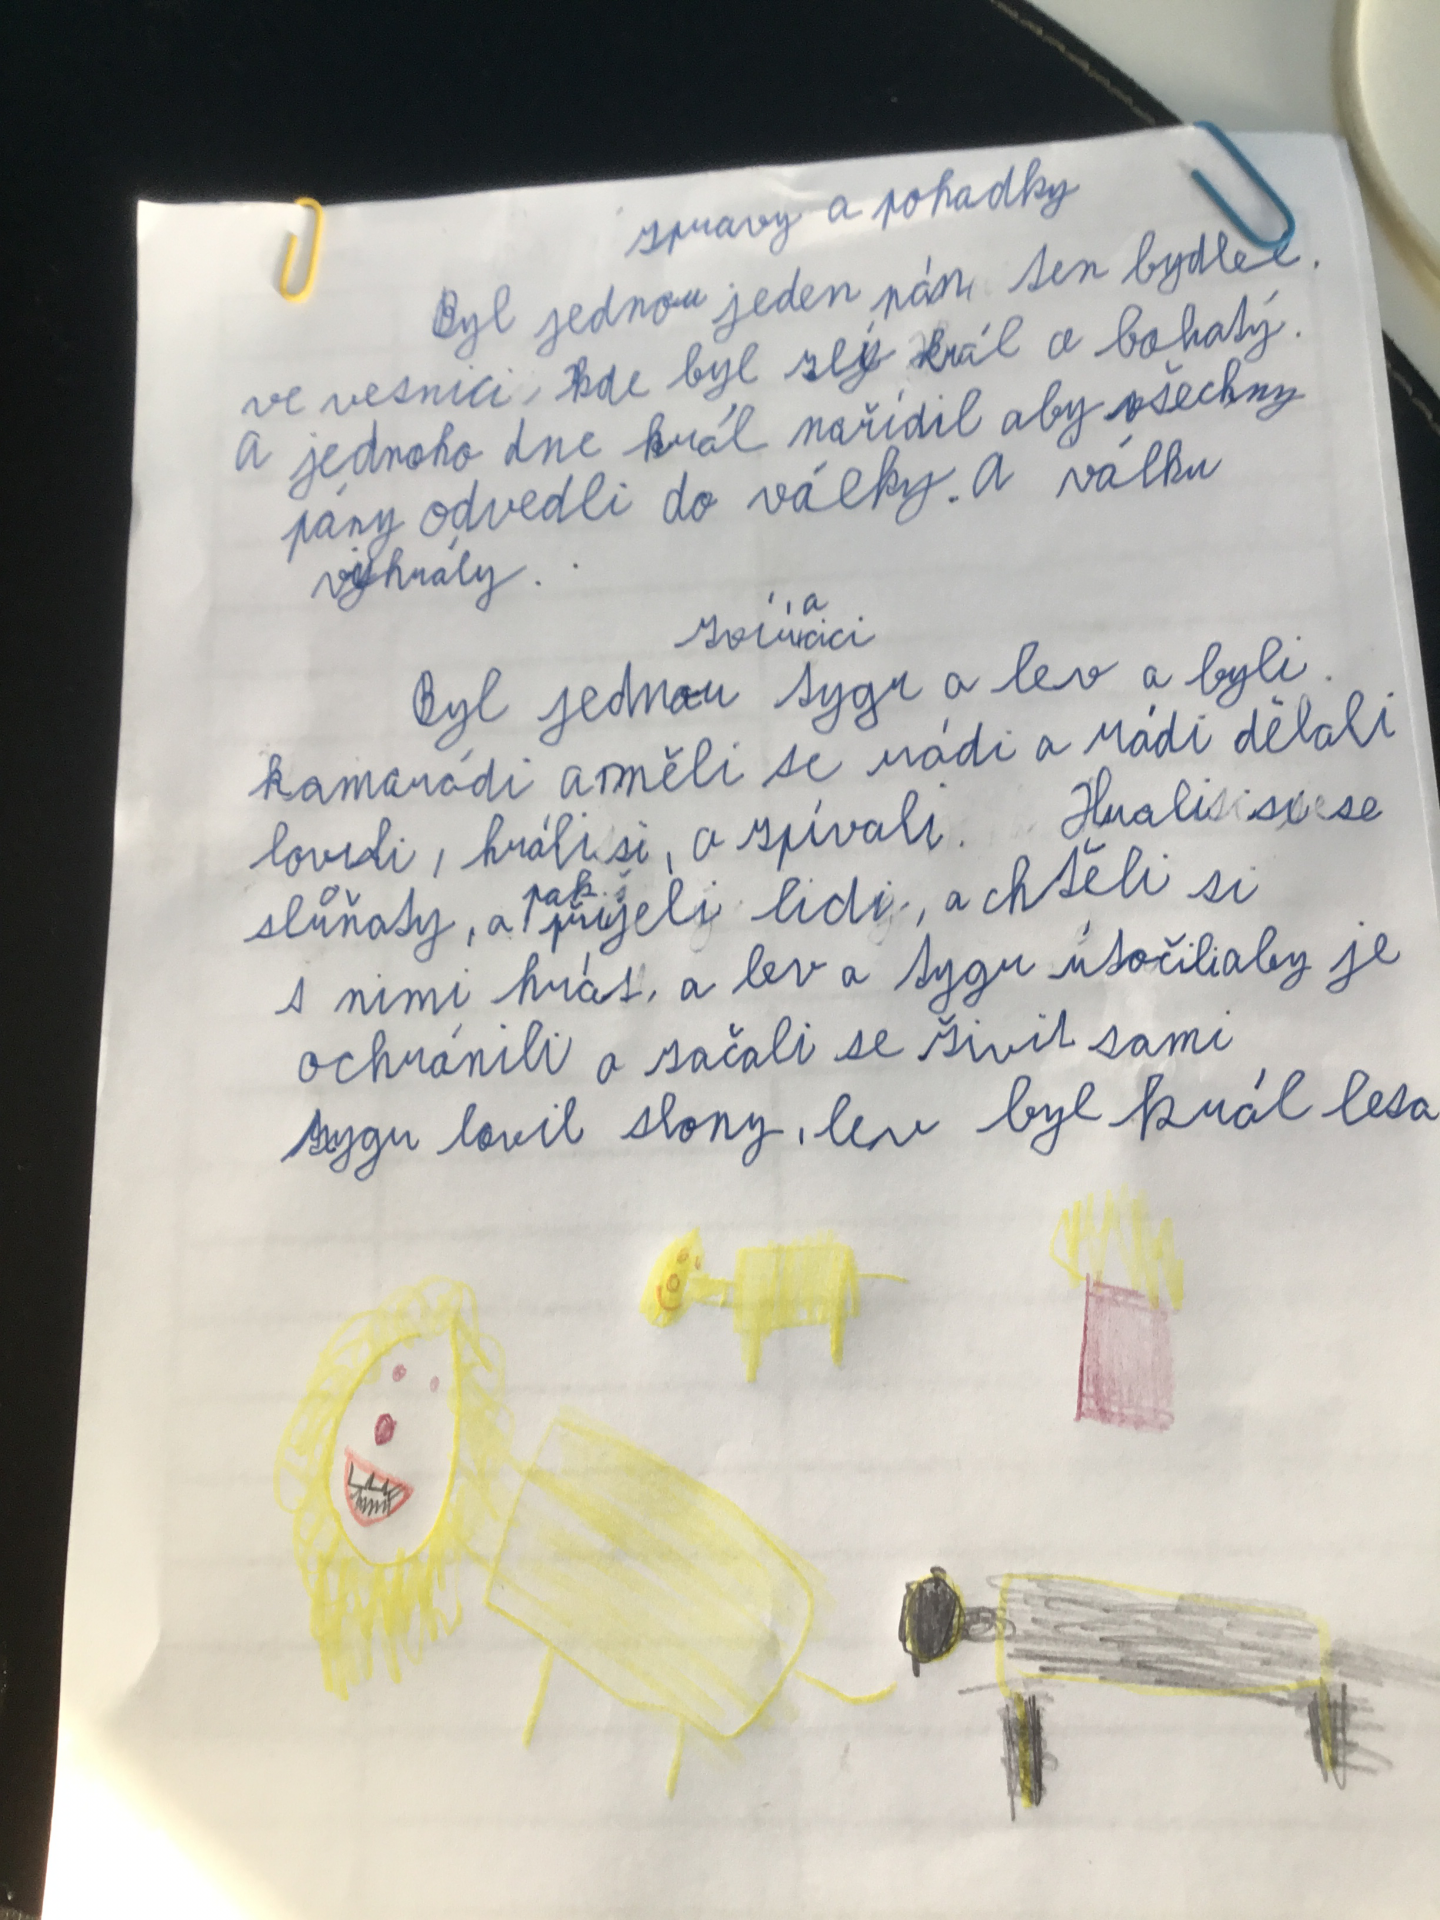 zpravy a pohadky
Byl jednou jeden pán, ten bydlel.
ve vesnici, kde byl zlý král a bohatý.
A jednoho dne král nařídil aby všechny
pány odvedli do války. A válku
vyhrály.
Byl jednou tygr a lev a byli.
kamarádi a měli se rádi a rádi dělali
lovidi, hráli si, a zpívali. Hrali si se
slůňaty, a pak přijeli lidi, a chtěli si
s nimi hrát, a lev a tygr útočili aby je
ochránili a začali se živit sami
tygr lovil slony, lev byl král lesa